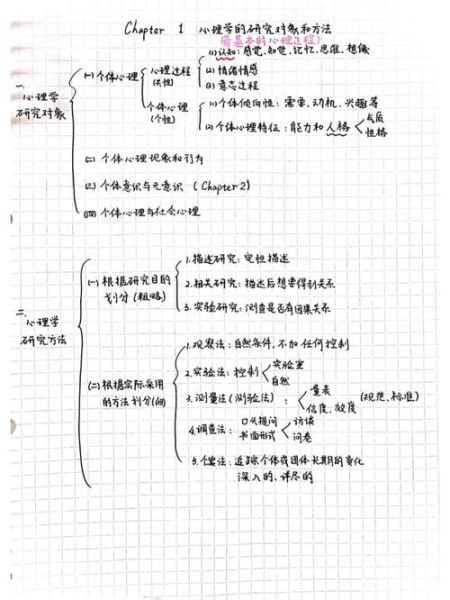 Chapter 1 心理学的研究对象和方法
(最基本的心理过程)
一、心理学研究对象
(一) 个体心理
心理过程(共性)
(1) 认知: 感觉, 知觉, 记忆, 思维, 想像
(2) 情绪情感
(3) 意志过程
个体心理(个性)
(1) 个体倾向性: 需要、动机、兴趣等
(2) 个体心理特征: 能力和人格
气质
性格
(二) 个体心理现象和行为
(三) 个体意识与无意识 (Chapter 2)
(四) 个体心理与社会心理
二、心理学研究方法
(一) 根据研究目的划分(粗略)
1. 描述研究: 定性描述
2. 相关研究: 描述后想要得到关系
3. 实验研究: 测查是否有因果关系
(二) 根据实际采用的方法划分
1. 观察法: 自然条件, 不加任何控制
2. 实验法: 控制
实验室
自然
3. 测量法(测验法):
量表
信度、效度
(规范、标准)
4. 调查法:
口头提问
书面形式
访谈
问卷
5. 个案法: 追踪个体或团体长期的变化
深入的、详尽的